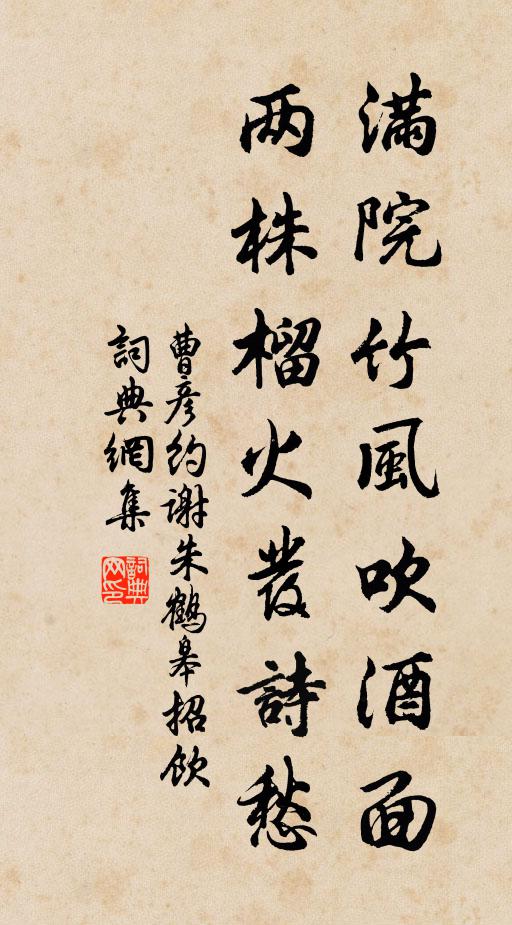 滿院竹風吹酒面
两株榴火發詩愁
曹彥約谢朱鶴皋招飲
詞典網集
詞典网印